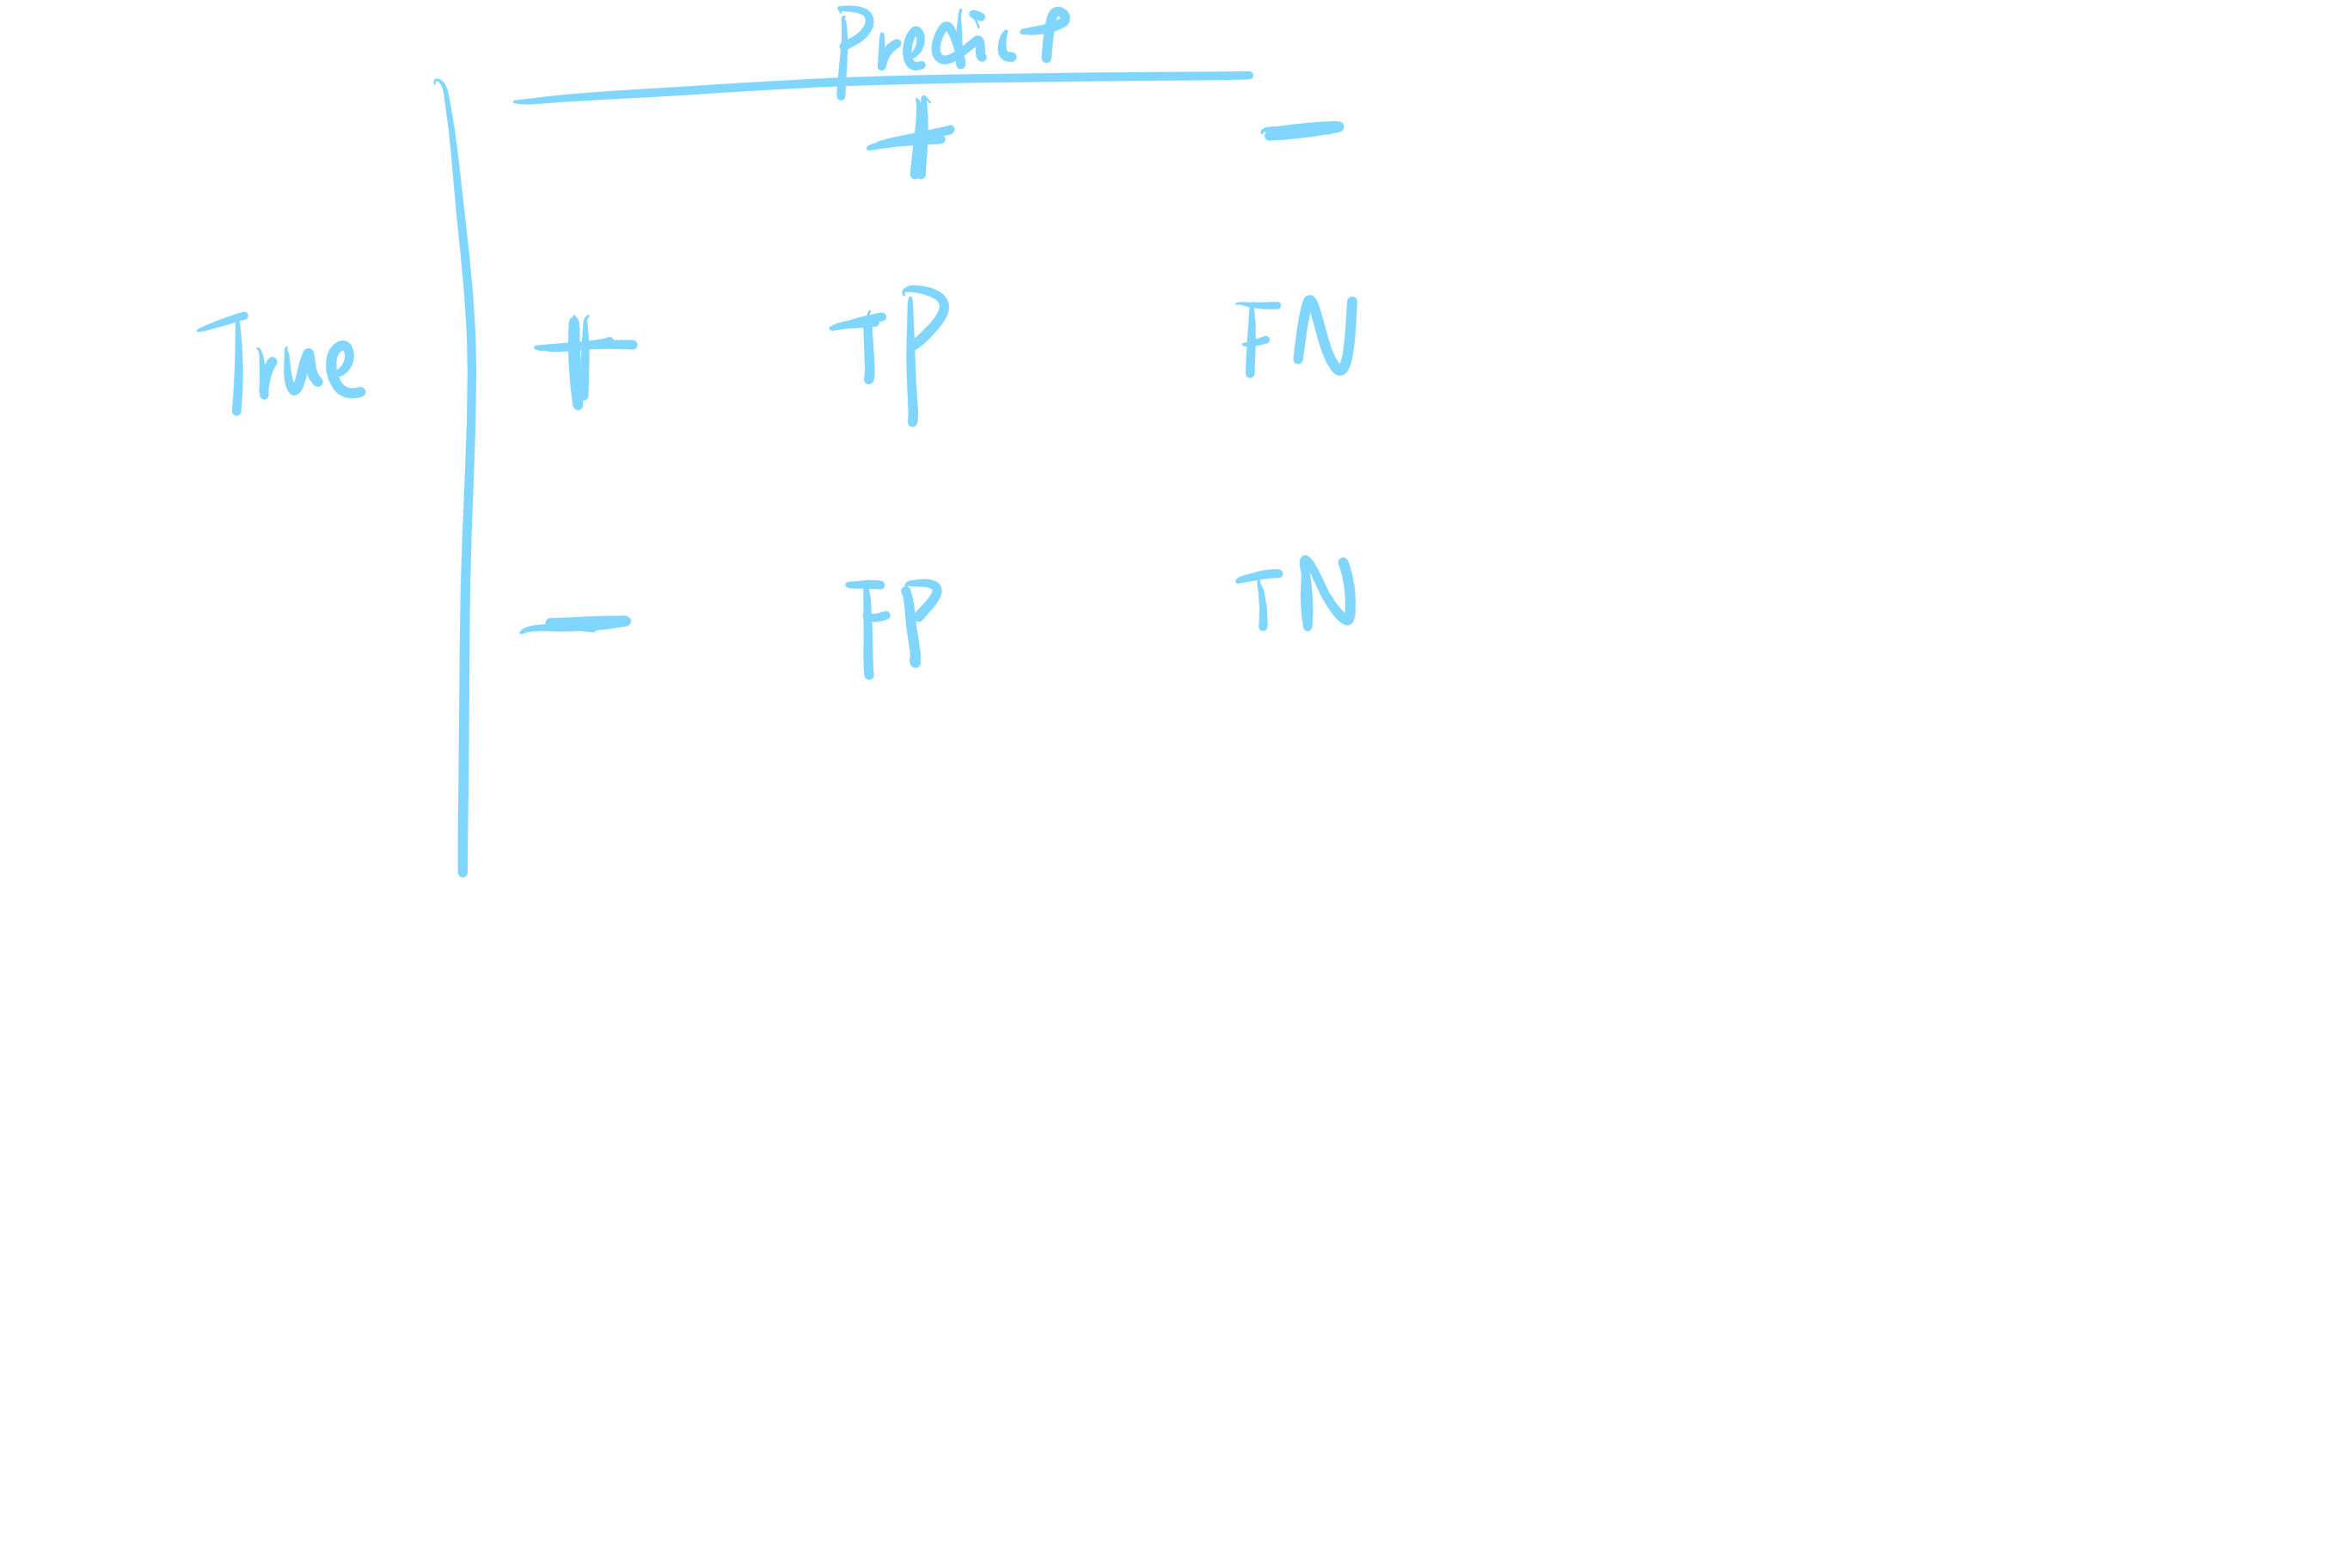 Predict
+ −
True + TP FN
− FP TN